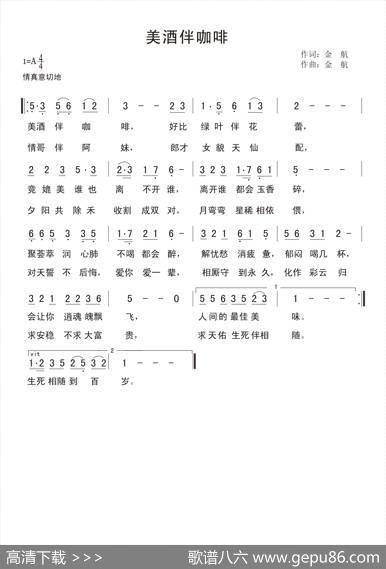 美酒伴咖啡
作词：金 航
1=A 4/4
作曲：金 航
情真意切地
5·3 5 6 1 2 3 - - 2 3 1·5 6 1 3 2 - - -
美酒 伴 咖 啡， 好比 绿 叶 伴 花 蕾，
情哥 伴 阿 妹， 郎才 女 貌 天 仙 配，
3 2 1 2 3 2·3 1 7 6
竞 媲 美 谁 也 离 不开 谁， 离开谁 都会 玉香 碎，
夕 阳 共 除 禾 收割 成双 对， 月弯弯 星稀 相依 偎，
聚荟萃 润 心肺 不喝 都会 醉， 解忧愁 消疲 惫， 郁闷 喝几 杯，
对天誓 不 后悔， 爱你 爱一 辈， 相厮守 到永 久， 化作 彩云 归
3 2 1 2 2 1 6 5 2 1 5 - - 0 5 5 6 3 5 2 3 1 - - -
会让你 逍魂 魄飘 飞， 人间的 最佳 美 味。
求安稳 不求 大富 贵， 求天佑 生死 伴相 随。
vit
1·2 3 5 2 5 3 2 1 - - -
生死 相随 到 百 岁。
高清下载 >>>
歌谱八六 www.gepu86.com